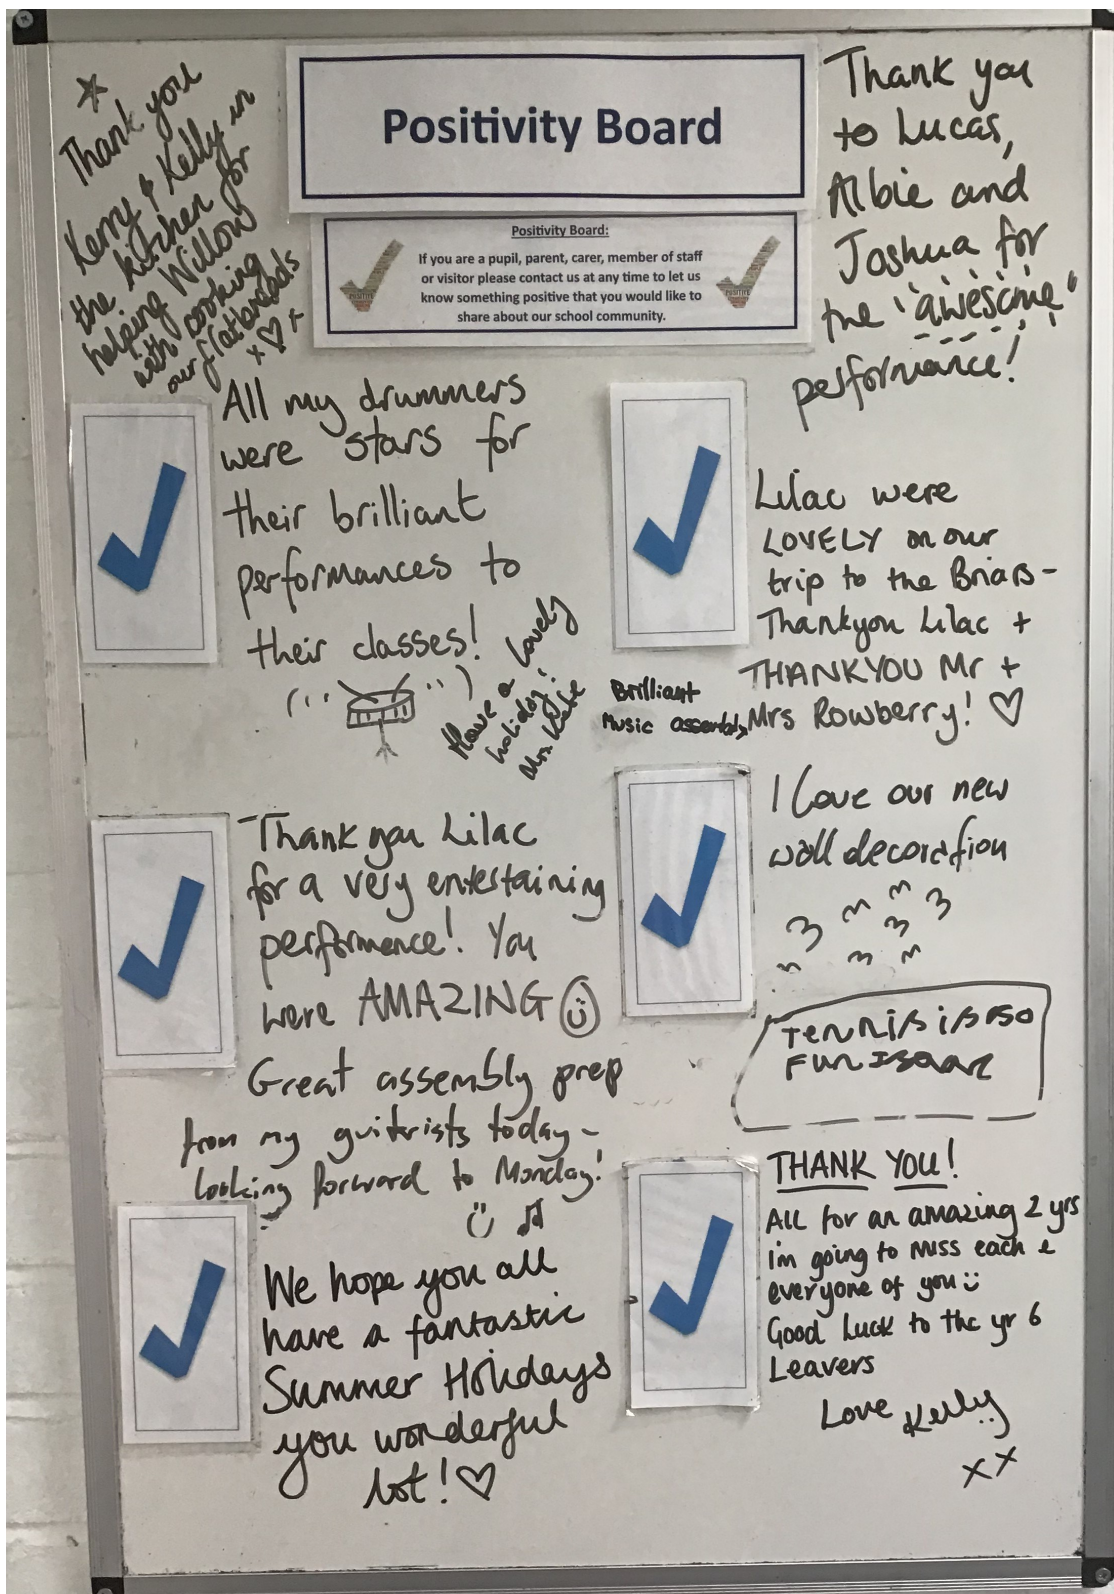 Positivity Board
Positivity Board:
If you are a pupil, parent, carer, member of staff
or visitor please contact us at any time to let us
know something positive that you would like to
share about our school community.
POSITIVE
POSITIVE
Thank you
Kerry & Kelly in
the kitchen for
helping Willow
with cooking
our flatbreads
x♡x
Thank you
to Lucas,
Albie and
Joshua for
the "awesome"
performance!
All my drummers
were stars for
their brilliant
performances to
their classes!
Have a lovely
holiday!
Mrs Kate
Lilac were
LOVELY on our
trip to the Briars -
Thankyou Lilac +
THANKYOU Mr +
Mrs Rowberry! ♡
Brilliant
Music assembly
Thank you Lilac
for a very entertaining
performance! You
were AMAZING ☺
I love our new
wall decoration
Great assembly prep
from my guitrists today -
looking forward to Monday!
Tennis is so
Fun Isaac
We hope you all
have a fantastic
Summer Holidays
you wonderful
lot! ♡
THANK YOU!
All for an amazing 2 yrs
I'm going to miss each &
everyone of you ☺
Good Luck to the yr 6
Leavers
Love Kelly
xx